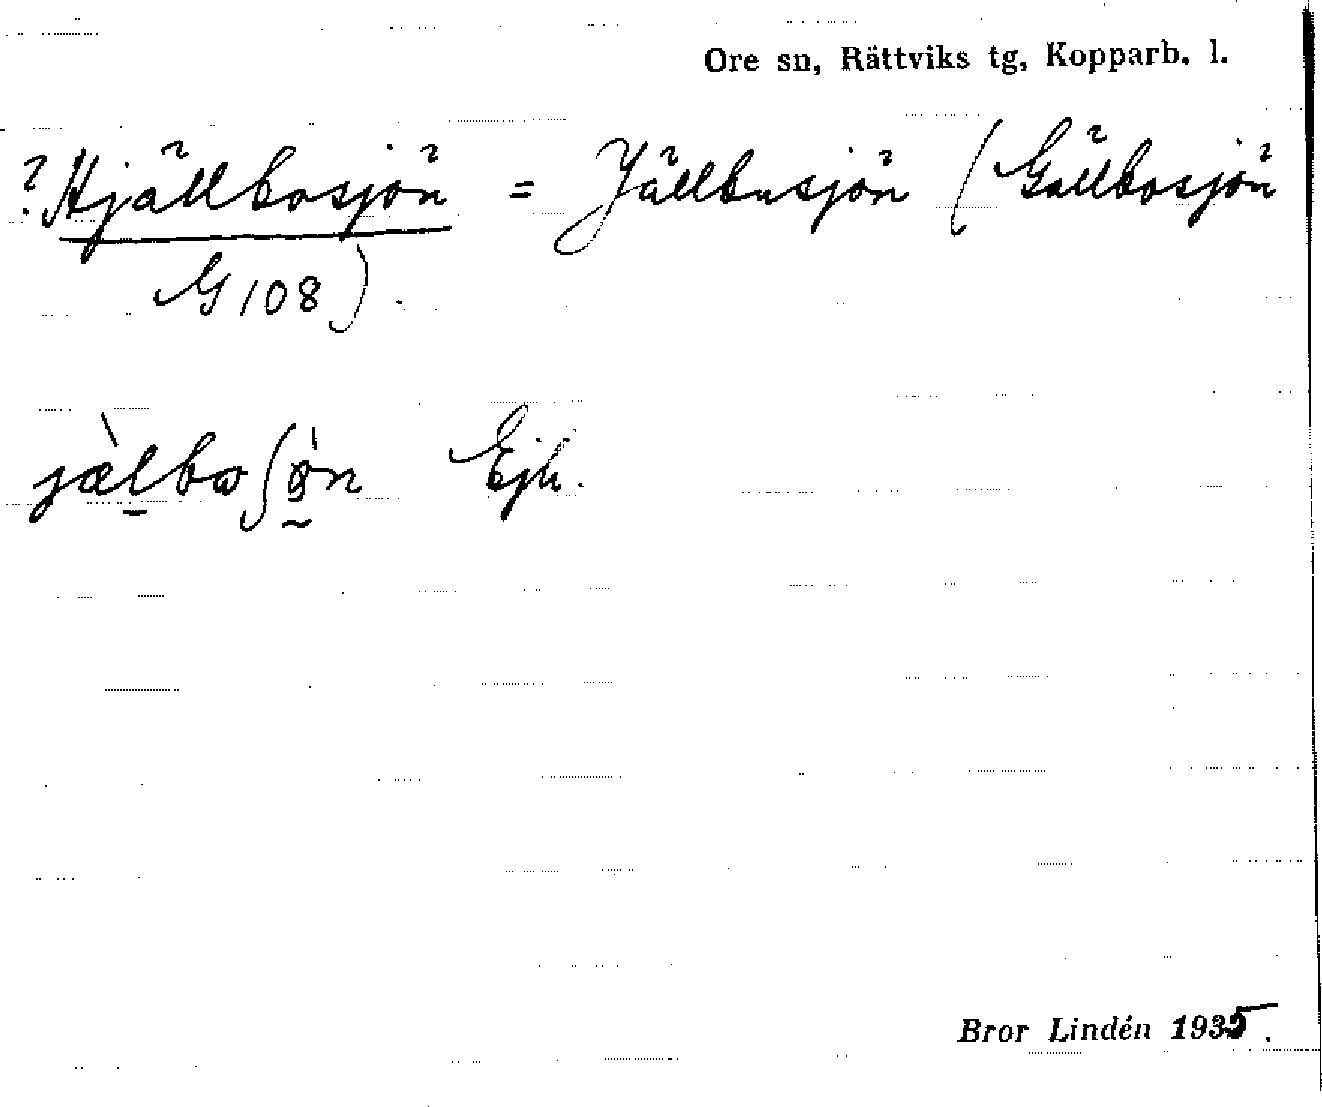 Ore sn, Rättviks tg, Kopparb. l.
? Hjällbosjön = Jällbusjön (Gällbosjön
G 108).
jàlboʃø̀n Ejh.
Bror Lindén 1935.